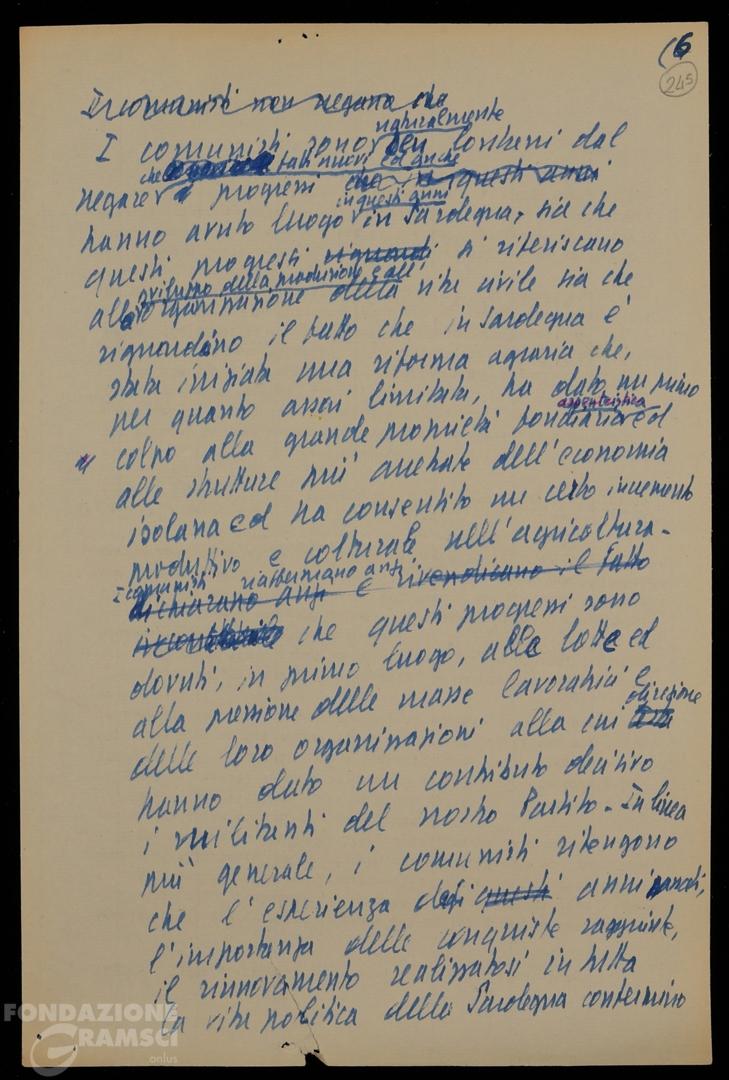 (6
245
I comunisti non negano che
naturalmente
I comunisti sono ben lontani dal
che fatti nuovi ed anche
negare progressi che in questi anni
in questi anni
hanno avuto luogo in Sardegna, sia che
questi progressi riguardi si riferiscano
sviluppo della produzione e all'
all'organizzazione della vita civile sia che
riguardino il fatto che in Sardegna è
stata iniziata una riforma agraria che,
per quanto assai limitata, ha dato un primo
assenteistica
colpo alla grande proprietà fondiaria ed
alle strutture più arretrate dell'economia
isolana ed ha consentito un certo incremento
produttivo e colturale nell'agricoltura.
I comunisti riaffermano anzi
dichiarano anzi e rivendicano il fatto
che questi progressi sono
dovuti, in primo luogo, alle lotte ed
alla pressione delle masse lavoratrici e
direzione
delle loro organizzazioni alla cui
hanno dato un contributo decisivo
i militanti del nostro Partito. In linea
più generale, i comunisti ritengono
che l'esperienza degli questi anni passati,
l'importanza delle conquiste raggiunte,
il rinnovamento realizzatosi in tutta
la vita politica della Sardegna confermino
FONDAZIONE
GRAMSCI
onlus